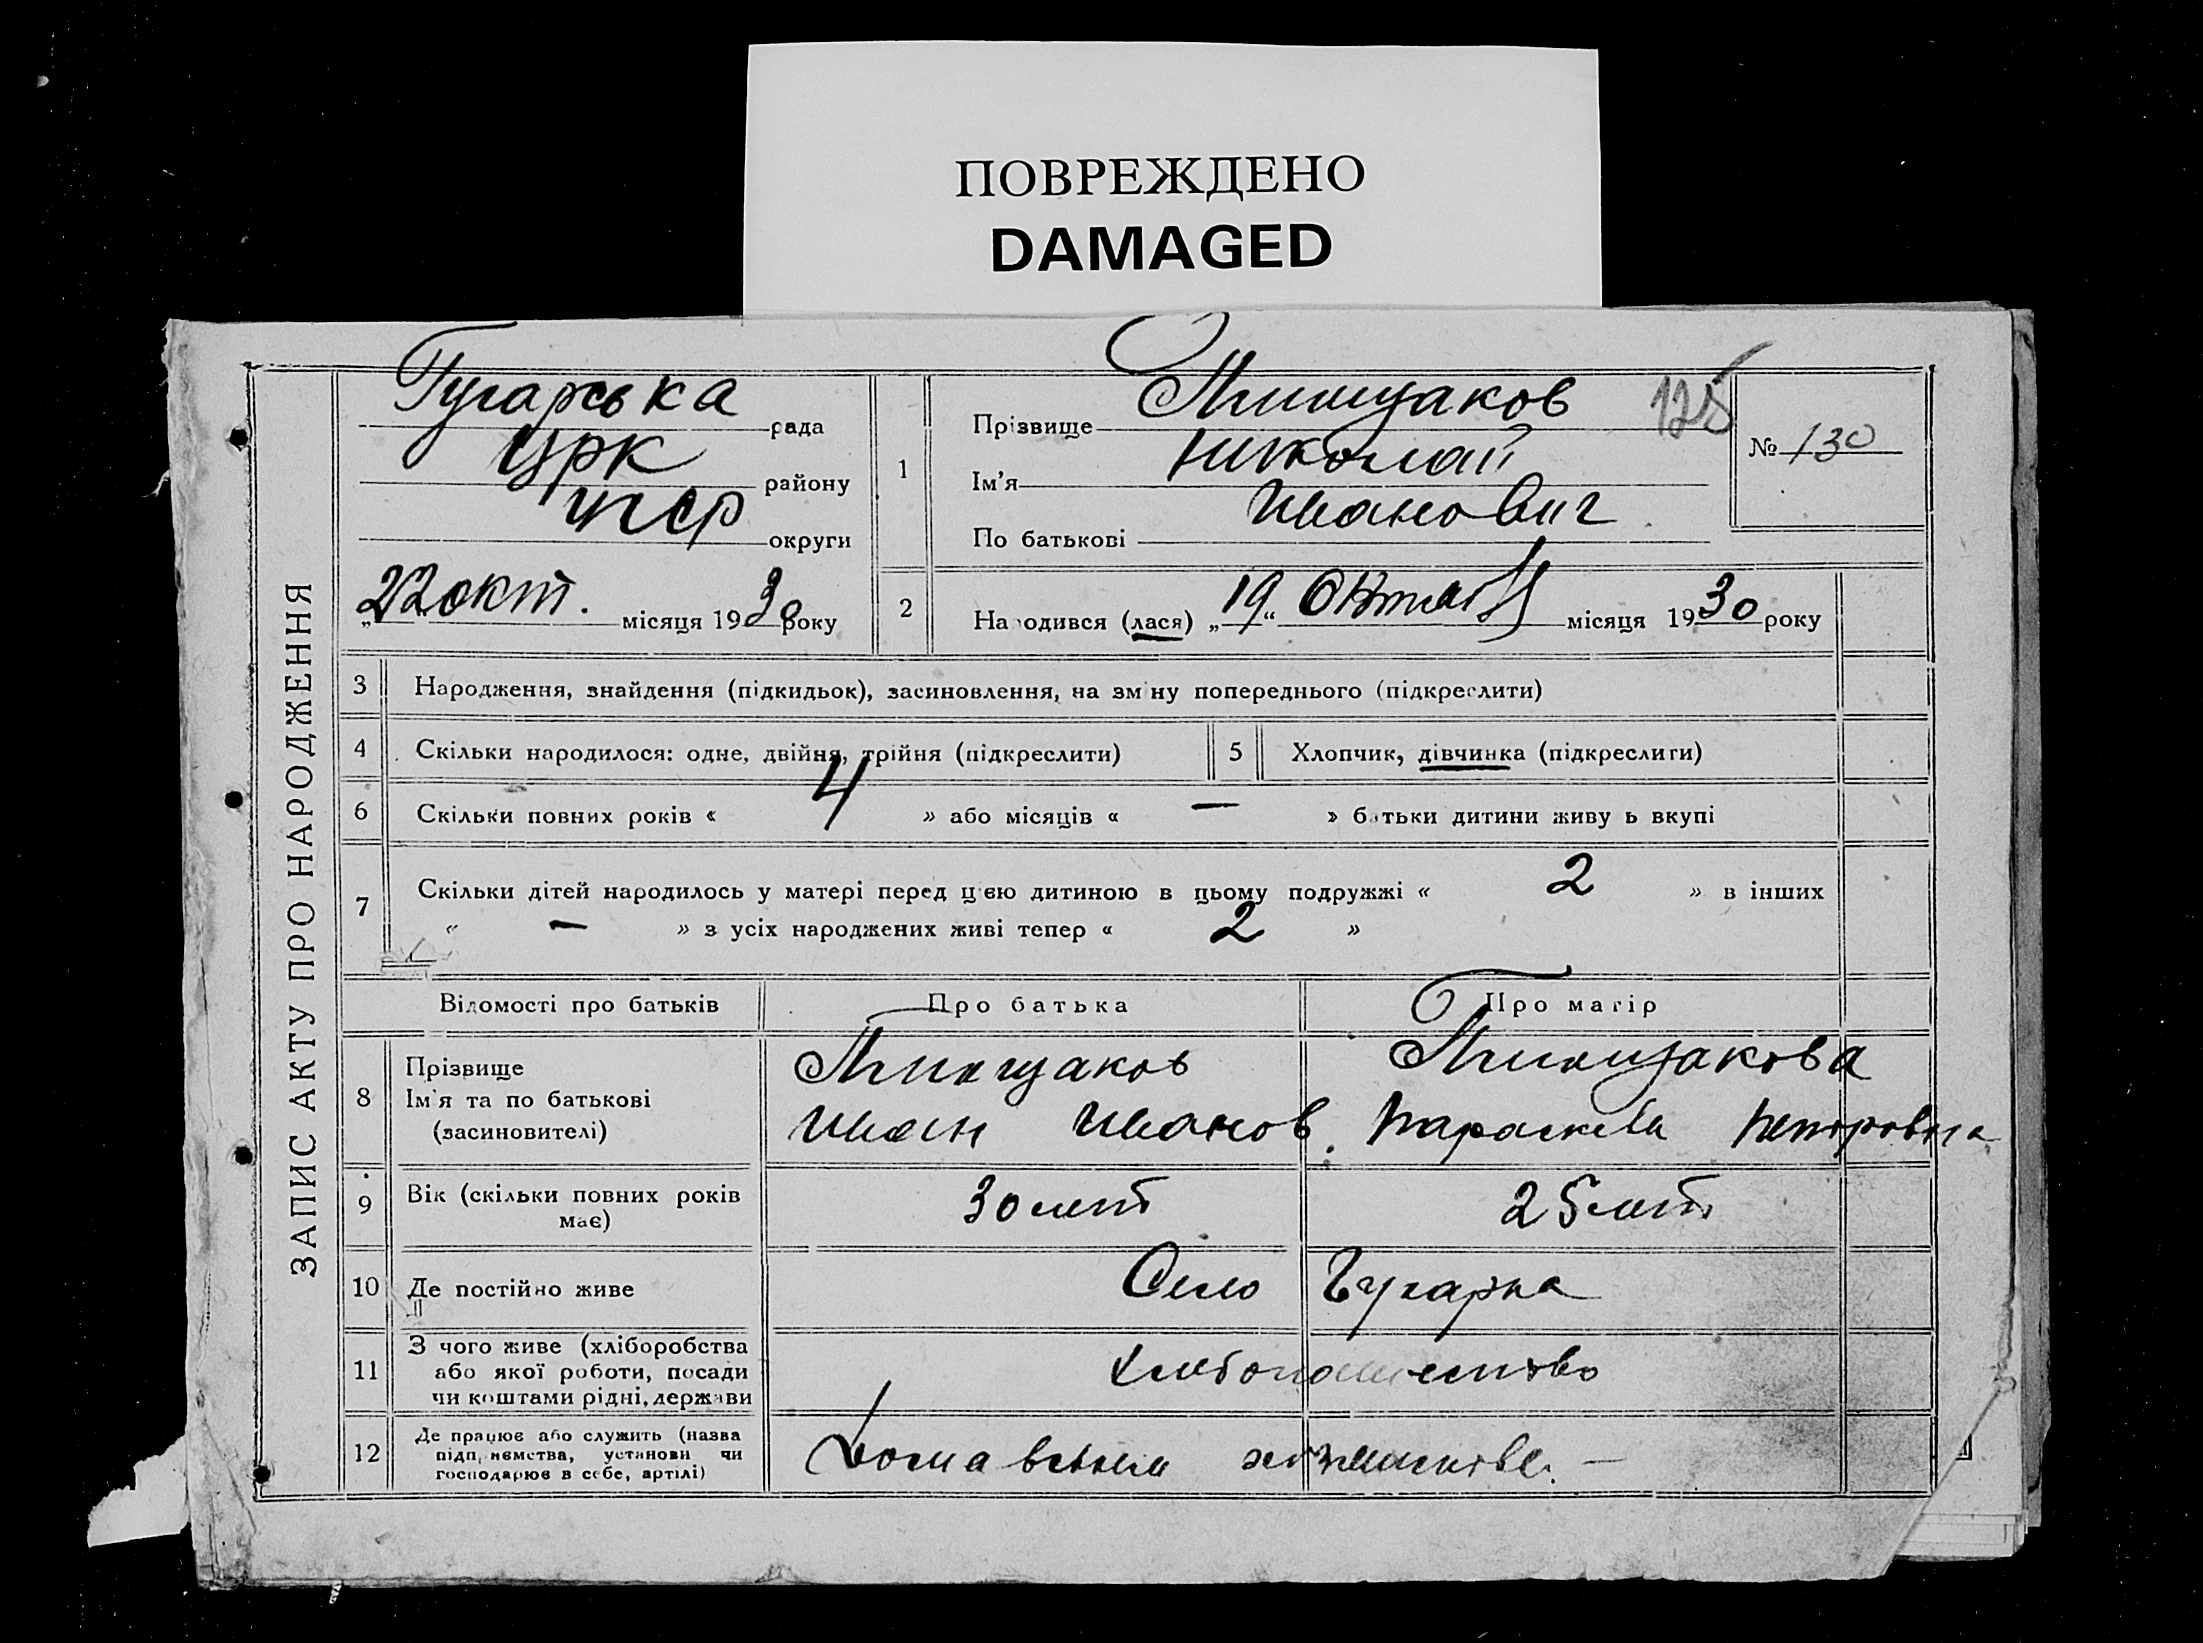 ПОВРЕЖДЕНО
DAMAGED
ЗАПИС АКТУ ПРО НАРОДЖЕННЯ
Гугарська рада
району
округи
22 окт. місяця 1930 року
1
Прізвище
Ім'я Николай
По батькові Иванович
125
№ 130
2
Народився (лася) „19“ Октяб місяця 1930 року
3 Народження, знайдення (підкидьок), засиновлення, на зміну попереднього (підкреслити)
4 Скільки народилося: одне, двійня, трійня (підкреслити)
5 Хлопчик, дівчинка (підкреслити)
6 Скільки повних років « 4 » або місяців « — » батьки дитини живуть вкупі
7 Скільки дітей народилось у матері перед цією дитиною в цьому подружжі « 2 » в інших
« — » з усіх народжених живі тепер « 2 »
Відомості про батьків Про батька Про матір
8 Прізвище
Ім'я та по батькові
(засиновителі)
Иван Иванов. Параскева Петровна
9 Вік (скільки повних років має) 30 лет 25 лет
10 Де постійно живе Село
11 З чого живе (хліборобства
або якої роботи, посади
чи коштами рідні, держави
Хлебопашество
12 Де працює або служить (назва
підприємства, установи чи
господарює в себе, артілі)